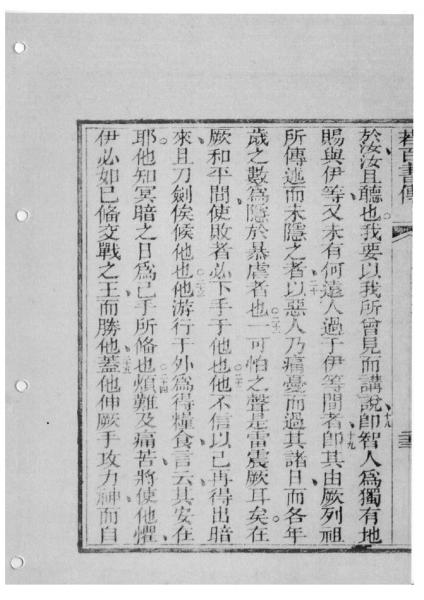 若百書傳
二三
於汝汝且聽也我要以我所曾見而講說十八即智人為獨有地
賜與伊等又未有何遠人過于伊等間者十九即其由厥列祖
所傳述而未隱之者二十以惡人乃痛憂而過其諸日而各年
歲之數為隱於暴虐者也二十一可怕之聲是雷震厥耳矣在
厥和平間使敗者必下手于他也二十二他不信以己再得出暗
來且刀劍俟候他也二十三他游行于外為得糧食言云其安在
耶他知冥暗之日為已手所俻也二十四煩難及痛苦將使他懼
伊必如已俻交戰之王而勝他二十五蓋他伸厥手攻力神而自